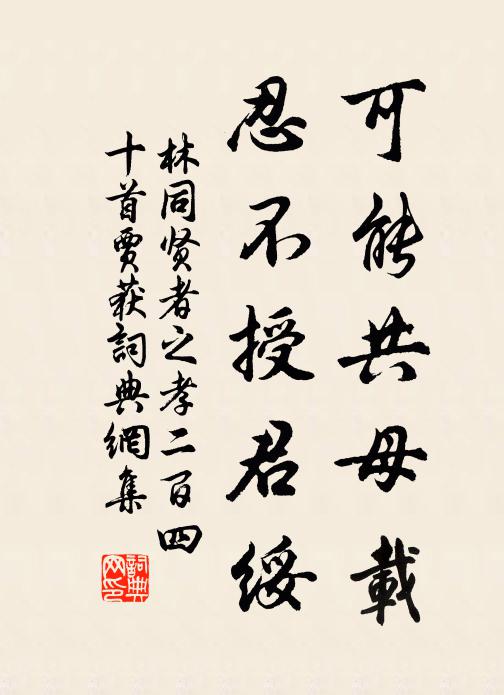 可能共母載
忍不授君綏
林同贤者之孝二百四
十首賈获詞典網集
詞典
网印